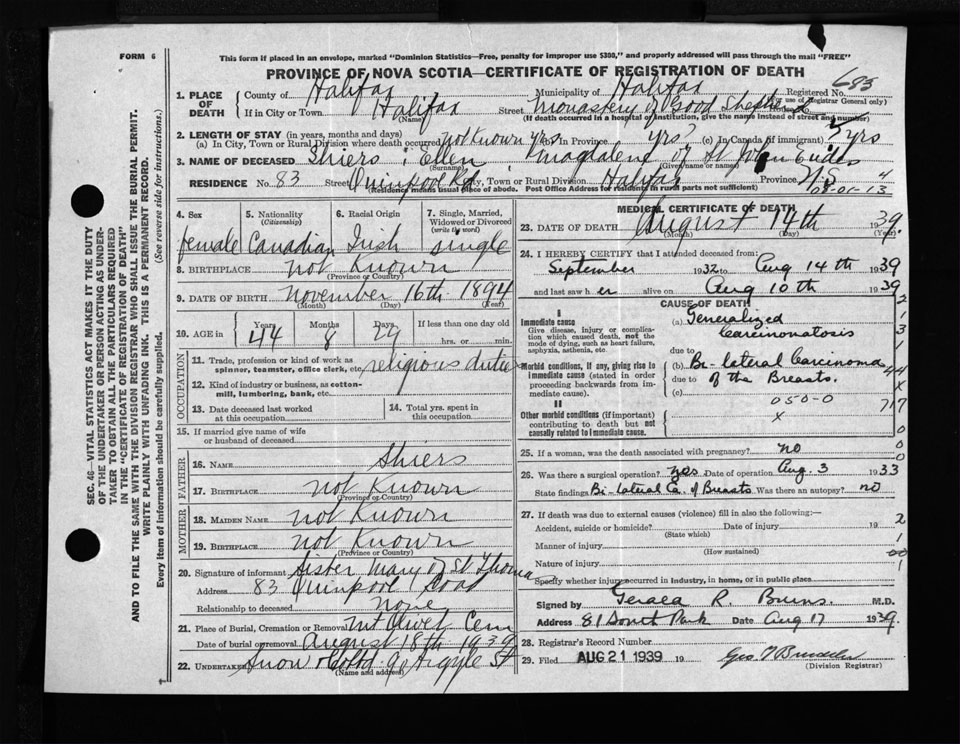 FORM 6
This form if placed in an envelope, marked "Dominion Statistics—Free, penalty for improper use $300," and properly addressed will pass through the mail "FREE"
PROVINCE OF NOVA SCOTIA—CERTIFICATE OF REGISTRATION OF DEATH
683
1. PLACE OF DEATH { County of Halifax Municipality of Halifax Registered No.
(For use of Registrar General only)
If in City or Town Halifax Street Monastery of Good Shepherd
(Name) (If death occurred in a hospital or institution, give the name instead of street and number)
2. LENGTH OF STAY (in years, months and days)
(a) In City, Town or Rural Division where death occurred not Known yrs (b) In Province yrs? (c) In Canada (if immigrant) yrs
3. NAME OF DECEASED Shiers : Ellen, Magdalene of St John Eudes
(Surname) (Given name or names)
RESIDENCE No. 83 Street Quinpool Rd City, Town or Rural Division Halifax Province N.S. 4
Residence means usual place of abode. Post Office Address for residents in rural parts not sufficient)
03-01-13
4. Sex 5. Nationality (Citizenship) 6. Racial Origin 7. Single, Married, Widowed or Divorced (write the word)
female Canadian Irish single
8. BIRTHPLACE not Known
(Province or Country)
9. DATE OF BIRTH November 16th 1894
(Month) (Day) (Year)
10. AGE in { Years Months Days If less than one day old
44 8 29 hrs. or min.
OCCUPATION
11. Trade, profession or kind of work as spinner, teamster, office clerk, etc. religious duties
12. Kind of industry or business, as cotton-mill, lumbering, bank, etc.
13. Date deceased last worked at this occupation 14. Total yrs. spent in this occupation.
15. If married give name of wife or husband of deceased
FATHER
16. NAME Shiers
17. BIRTHPLACE Not Known
(Province or Country)
MOTHER
18. MAIDEN NAME not Known
19. BIRTHPLACE not Known
(Province or Country)
20. Signature of informant Sister Mary of St Thomas
Address 83 Quinpool Road
Relationship to deceased None
21. Place of Burial, Cremation or Removal Mt Olivet Cem
Date of burial or removal August 18th 1939
22. UNDERTAKER Snow & Co Ltd 90 Argyle St
(Name and address)
MEDICAL CERTIFICATE OF DEATH
23. DATE OF DEATH August 14th 1939.
(Month) (Day) (Year)
24. I HEREBY CERTIFY that I attended deceased from:
September 1932 to Aug 14th 1939
and last saw her alive on Aug 10th 1939
CAUSE OF DEATH
I
Immediate cause (a) Generalized Carcinomatosis
Give disease, injury or complication which caused death, not the mode of dying, such as heart failure, asphyxia, asthenia, etc.
due to
Morbid conditions, if any, giving rise to immediate cause (stated in order proceeding backwards from immediate cause). (b) Bi-lateral Carcinoma
due to of the Breasts.
(c)
050-0
II
Other morbid conditions (if important) contributing to death but not causally related to immediate cause. x
2
1
3
1
44
x
717
0
0
25. If a woman, was the death associated with pregnancy? no
26. Was there a surgical operation? yes Date of operation Aug 3 1933
State findings Bi-lateral Ca of Breasts Was there an autopsy? no
27. If death was due to external causes (violence) fill in also the following:—
Accident, suicide or homicide? Date of injury 19
(State which)
Manner of injury
(How sustained)
Nature of injury
Specify whether injury occurred in industry, in home, or in public place
2
1
00
1
Signed by Gerald R. Burns. M.D.
Address 81 South Park Date Aug 17 1939.
28. Registrar's Record Number
29. Filed AUG 21 1939 19
(Division Registrar)
SEC. 46—VITAL STATISTICS ACT MAKES IT THE DUTY OF THE UNDERTAKER OR PERSON ACTING AS UNDERTAKER TO OBTAIN ALL THE PARTICULARS REQUIRED IN THE "CERTIFICATE OF REGISTRATION OF DEATH"
AND TO FILE THE SAME WITH THE DIVISION REGISTRAR WHO SHALL ISSUE THE BURIAL PERMIT.
WRITE PLAINLY WITH UNFADING INK. THIS IS A PERMANENT RECORD.
Every item of information should be carefully supplied. (See reverse side for instructions).